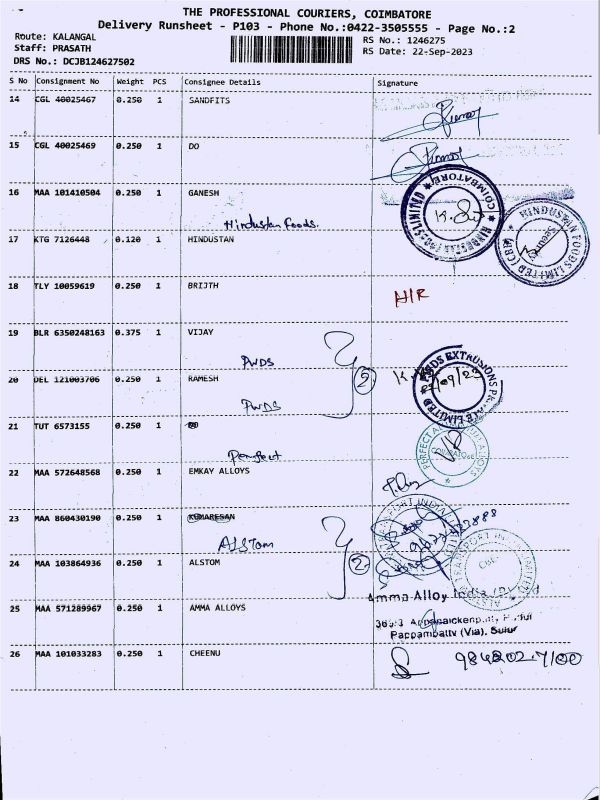 THE PROFESSIONAL COURIERS, COIMBATORE
Delivery Runsheet - P103 - Phone No.:0422-3505555 - Page No.:2
Route: KALANGAL
RS No.: 1246275
Staff: PRASATH
RS Date: 22-Sep-2023
DRS No.: DCJB124627502
S No Consignment No Weight PCS Consignee Details Signature
14 CGL 40025467 0.250 1 SANDFITS
15 CGL 40025469 0.250 1 DO
16 MAA 101410504 0.250 1 GANESH
Hindustan Foods.
HINDUSTAN FOODS LIMITED COIMBATORE
HINDUSTAN FOODS LIMITED (CBE)
17 KTG 7126448 0.120 1 HINDUSTAN
18 TLY 10059619 0.250 1 BRIJTH
H/R
19 BLR 6350248163 0.375 1 VIJAY
PWDS
2
20 DEL 121003706 0.250 1 RAMESH
PWDS
21 TUT 6573155 0.250 1
Perfect
22 MAA 572648568 0.250 1 EMKAY ALLOYS
23 MAA 860430190 0.250 1 KUMARESAN
AlStom
2
24 MAA 103864936 0.250 1 ALSTOM
25 MAA 571289967 0.250 1 AMMA ALLOYS
Amma Alloy India
Pappambatty (Via). Sulur
26 MAA 101033283 0.250 1 CHEENU